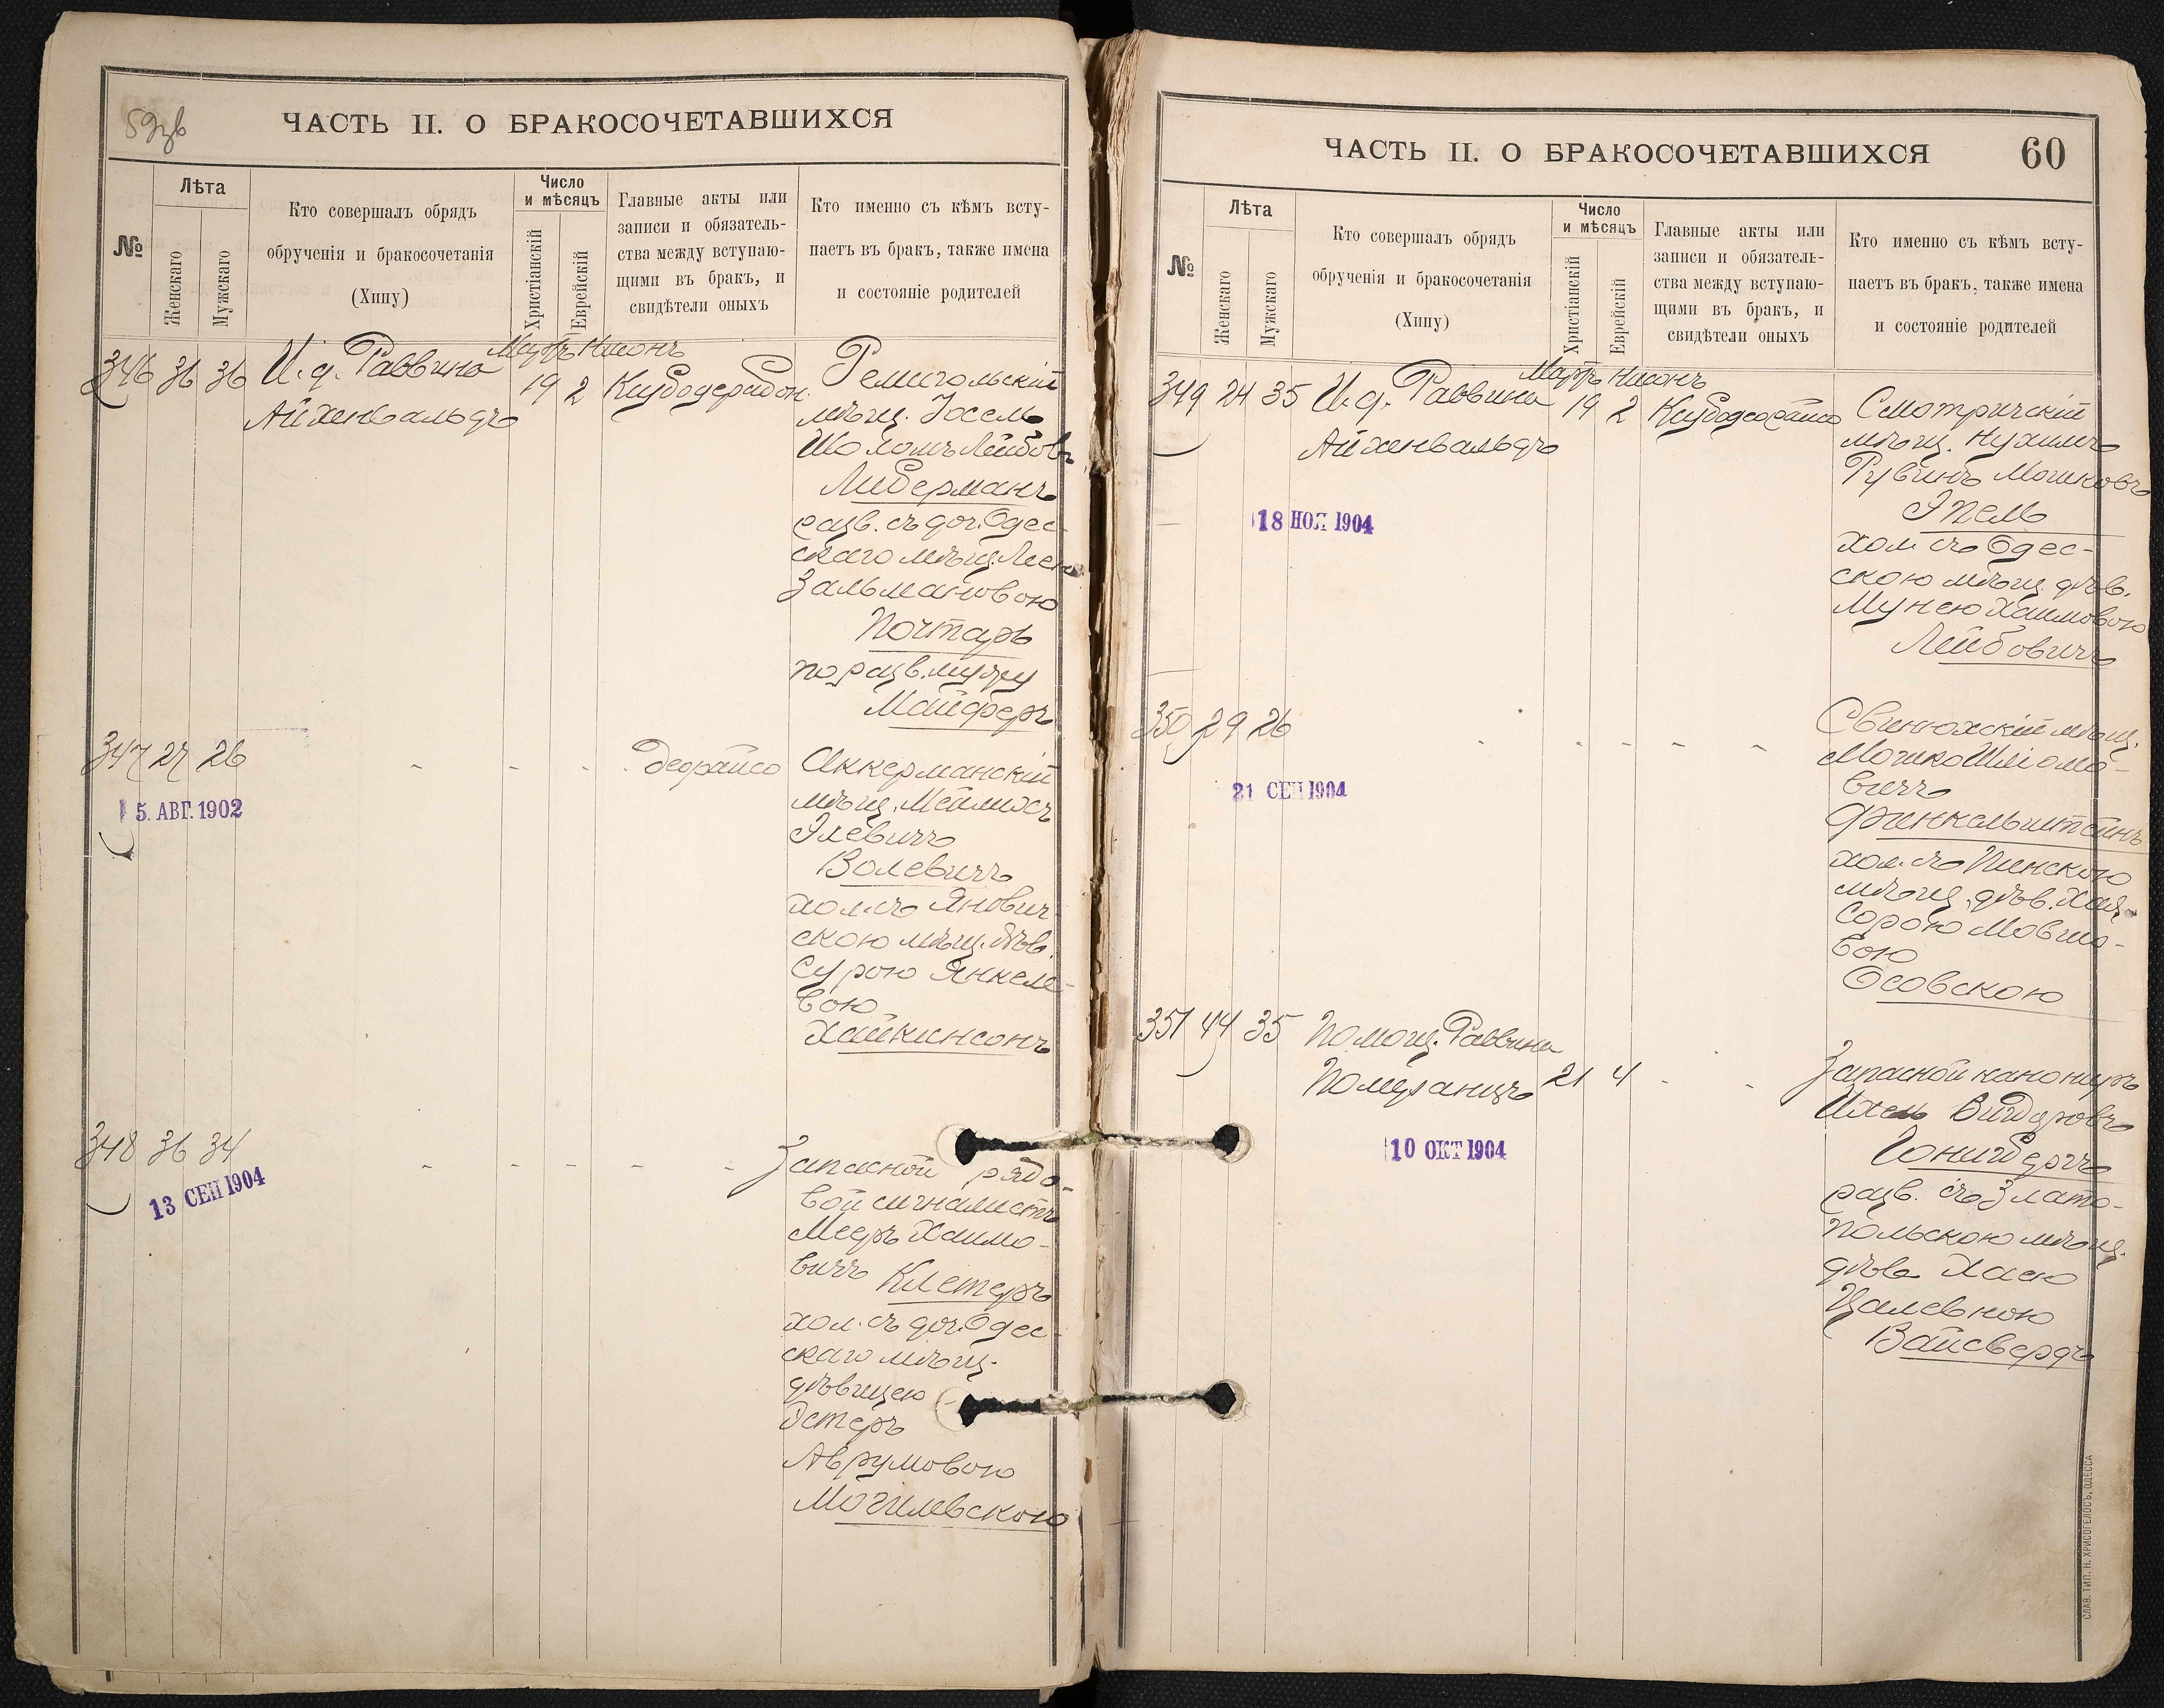 59зв
ЧАСТЬ II. О БРАКОСОЧЕТАВШИХСЯ
№
Лѣта
Женскаго
Мужскаго
Кто совершалъ обрядъ
обрученія и бракосочетанія
(Хипу)
Число
и мѣсяцъ
Христіанскій
Еврейскій
Главные акты или
записи и обязатель-
ства между вступаю-
щими въ бракъ, и
свидѣтели оныхъ
Кто именно съ кѣмъ всту-
паетъ въ бракъ, также имена
и состояніе родителей
346 36 36 И. д. Раввина
Айхенвальдъ
Мартъ Нисонъ
19 2
Ремигольскій
мѣщ. Іосель
Шоломъ Лейбовъ
Либерманъ
разв. съ доч. Одес-
скаго мѣщ.
Зальмановою
Почтарь
по разв. мужу
Майферъ
347 27 26
15. АВГ. 1902
Аккерманскій
мѣщ.
Элевичъ
Волевичъ
хол. съ Янович-
скою мѣщ. дѣв.
Сурою Янкеле-
вою
Хайкинсонъ
348 36 34
13 СЕН 1904
Запасной рядо-
вой сигналистъ
Мееръ Хаимо-
вичъ Клетеръ
хол. съ доч. Одес-
скаго мѣщ.
дѣвицею
Эстеръ
Аврумовою
Могилевскою
ЧАСТЬ II. О БРАКОСОЧЕТАВШИХСЯ
60
№
Лѣта
Женскаго
Мужскаго
Кто совершалъ обрядъ
обрученія и бракосочетанія
(Хипу)
Число
и мѣсяцъ
Христіанскій
Еврейскій
Главные акты или
записи и обязатель-
ства между вступаю-
щими въ бракъ, и
свидѣтели оныхъ
Кто именно съ кѣмъ всту-
паетъ въ бракъ, также имена
и состояніе родителей
349 24 35 И. д. Раввина
Айхенвальдъ
Мартъ Нисонъ
19 2
18 НОЯ 1904
Смотричскій
мѣщ. Нухимъ
Рувинъ Мошковъ
Эпель
хол. съ Одес-
скою мѣщ. дѣв.
Мунею Хаимовою
Лейбовичъ
350 29 26
21 СЕН 1904
Свинюхскій мѣщ.
Мошко Шліомо-
вичъ
Финкельштейнъ
хол. съ Пинскою
мѣщ. дѣв. Хая-
Сорою Мовшо-
вою
Осовскою
351 44 35 Помощ. Раввина
Померанцъ 21 4
10 ОКТ 1904
Запасной канониръ
Ихель Вигдоровъ
Гонигбергъ
разв. съ Злато-
польскою мѣщ.
дѣв. Хаею
Цалевною
Вайсбердъ
СЛАВ. ТИП. Н. ХРИСОГЕЛОСЪ, ОДЕССА